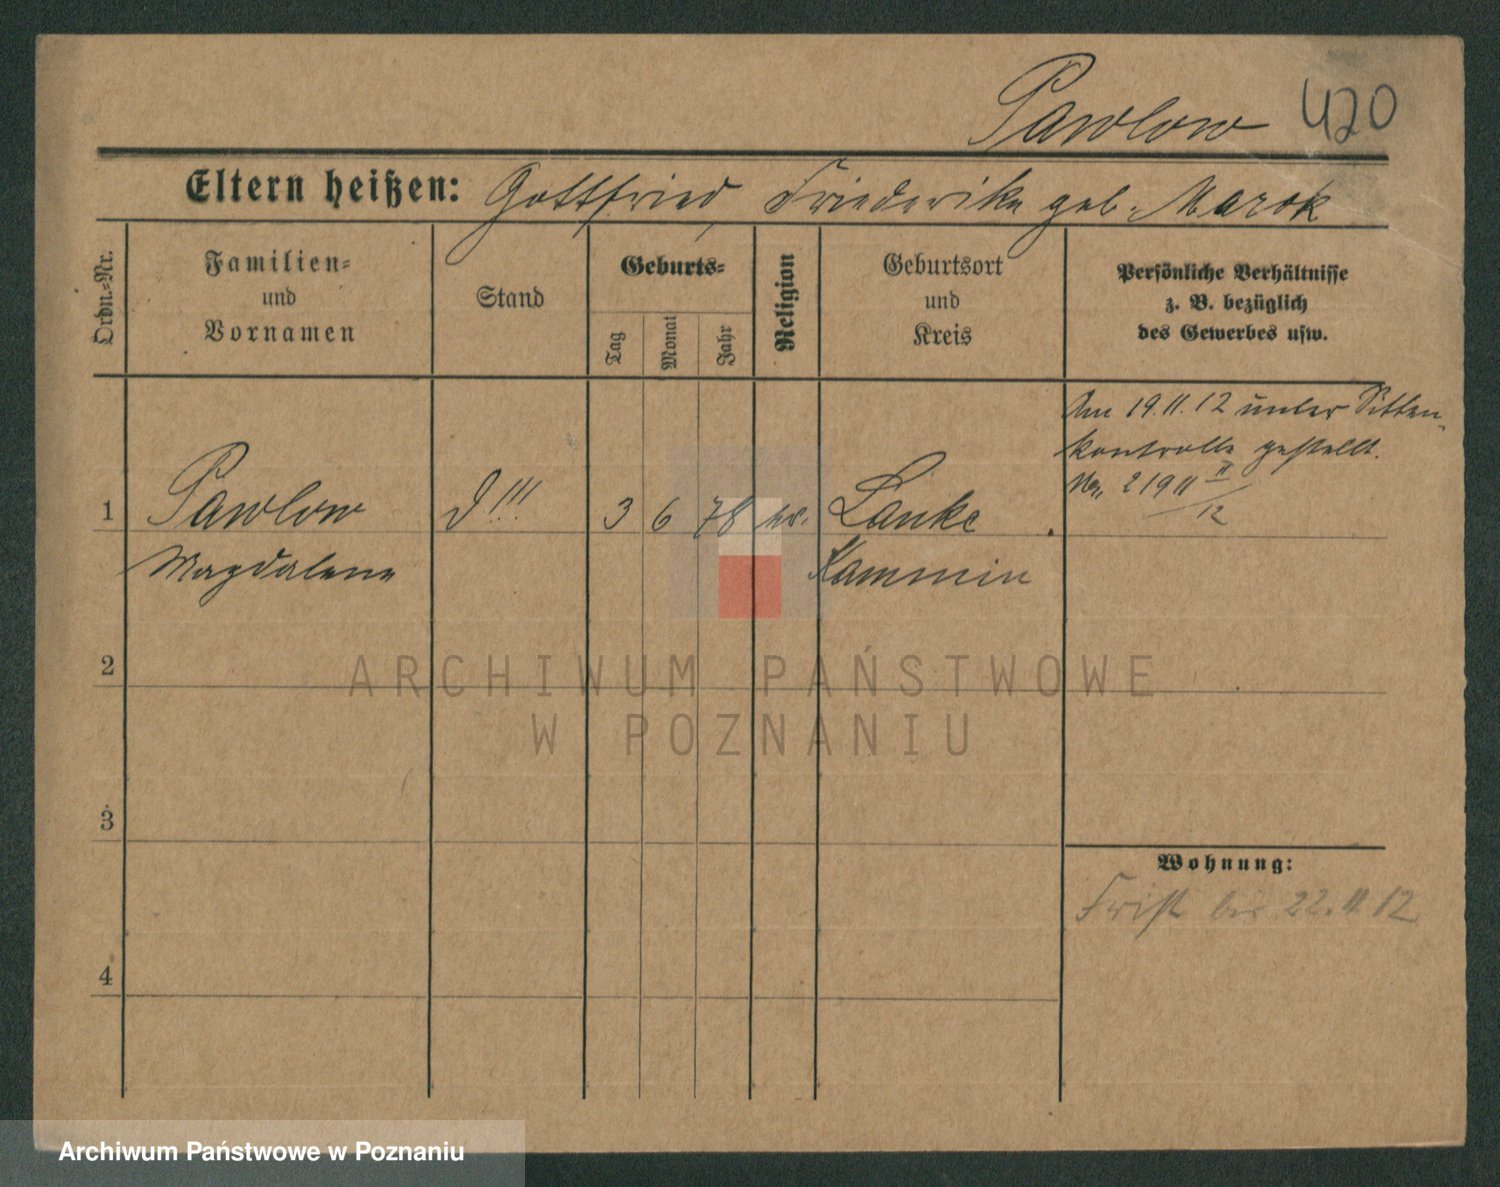 Pawlow 420
Eltern heißen: Gottfried, Friederike geb. Marok
Ordn.-Nr.
Familien-
und
Vornamen
Stand
Geburts-
Tag
Monat
Jahr
Religion
Geburtsort
und
Kreis
Persönliche Verhältnisse
z. B. bezüglich
des Gewerbes usw.
Am 19.11.12 unter Sitten-
kontrolle gestellt.
1 Pawlow 3 6 78 Lanke
Magdalena Kammin
2
ARCHIWUM PAŃSTWOWE
W POZNANIU
3
Wohnung:
Frist bis 22.11.12
4
Archiwum Państwowe w Poznaniu